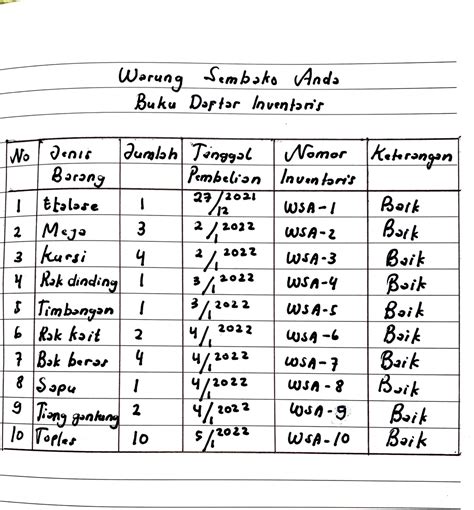 Warung Sembako Anda
Buku Daftar Inventaris
No Jenis Barang Jumlah Tanggal Pembelian Nomor Inventaris Keterangan
1 Etalase 1 27/12 2021 WSA-1 Baik
2 Meja 3 2/1 2022 WSA-2 Baik
3 Kursi 4 2/1 2022 WSA-3 Baik
4 Rak dinding 1 3/1 2022 WSA-4 Baik
5 Timbangan 1 3/1 2022 WSA-5 Baik
6 Rak kait 2 4/1 2022 WSA-6 Baik
7 Bak beras 4 4/1 2022 WSA-7 Baik
8 Sapu 1 4/1 2022 WSA-8 Baik
9 Tiang gantung 2 4/1 2022 WSA-9 Baik
10 Toples 10 5/1 2022 WSA-10 Baik